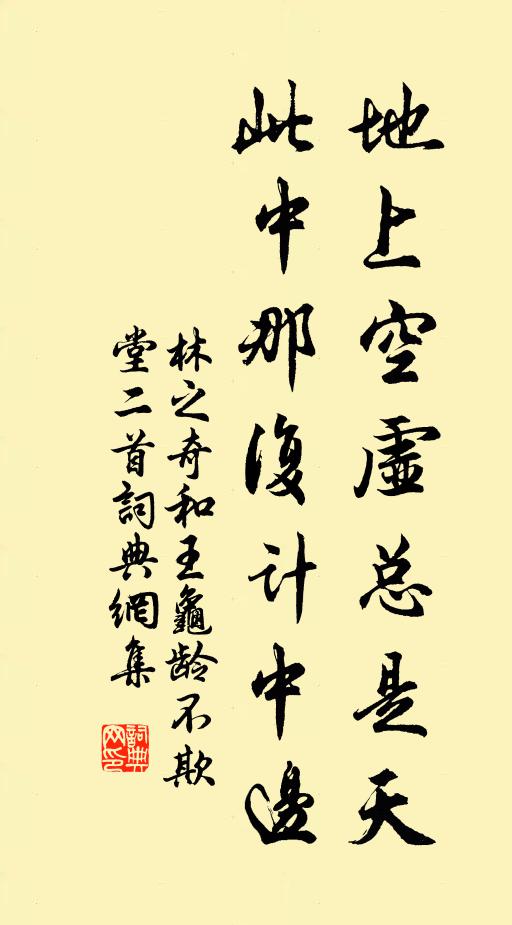 地上空虛总是天
此中那復计中邊
林之奇和王龜龄不欺
堂二首詞典網集
詞典
网印